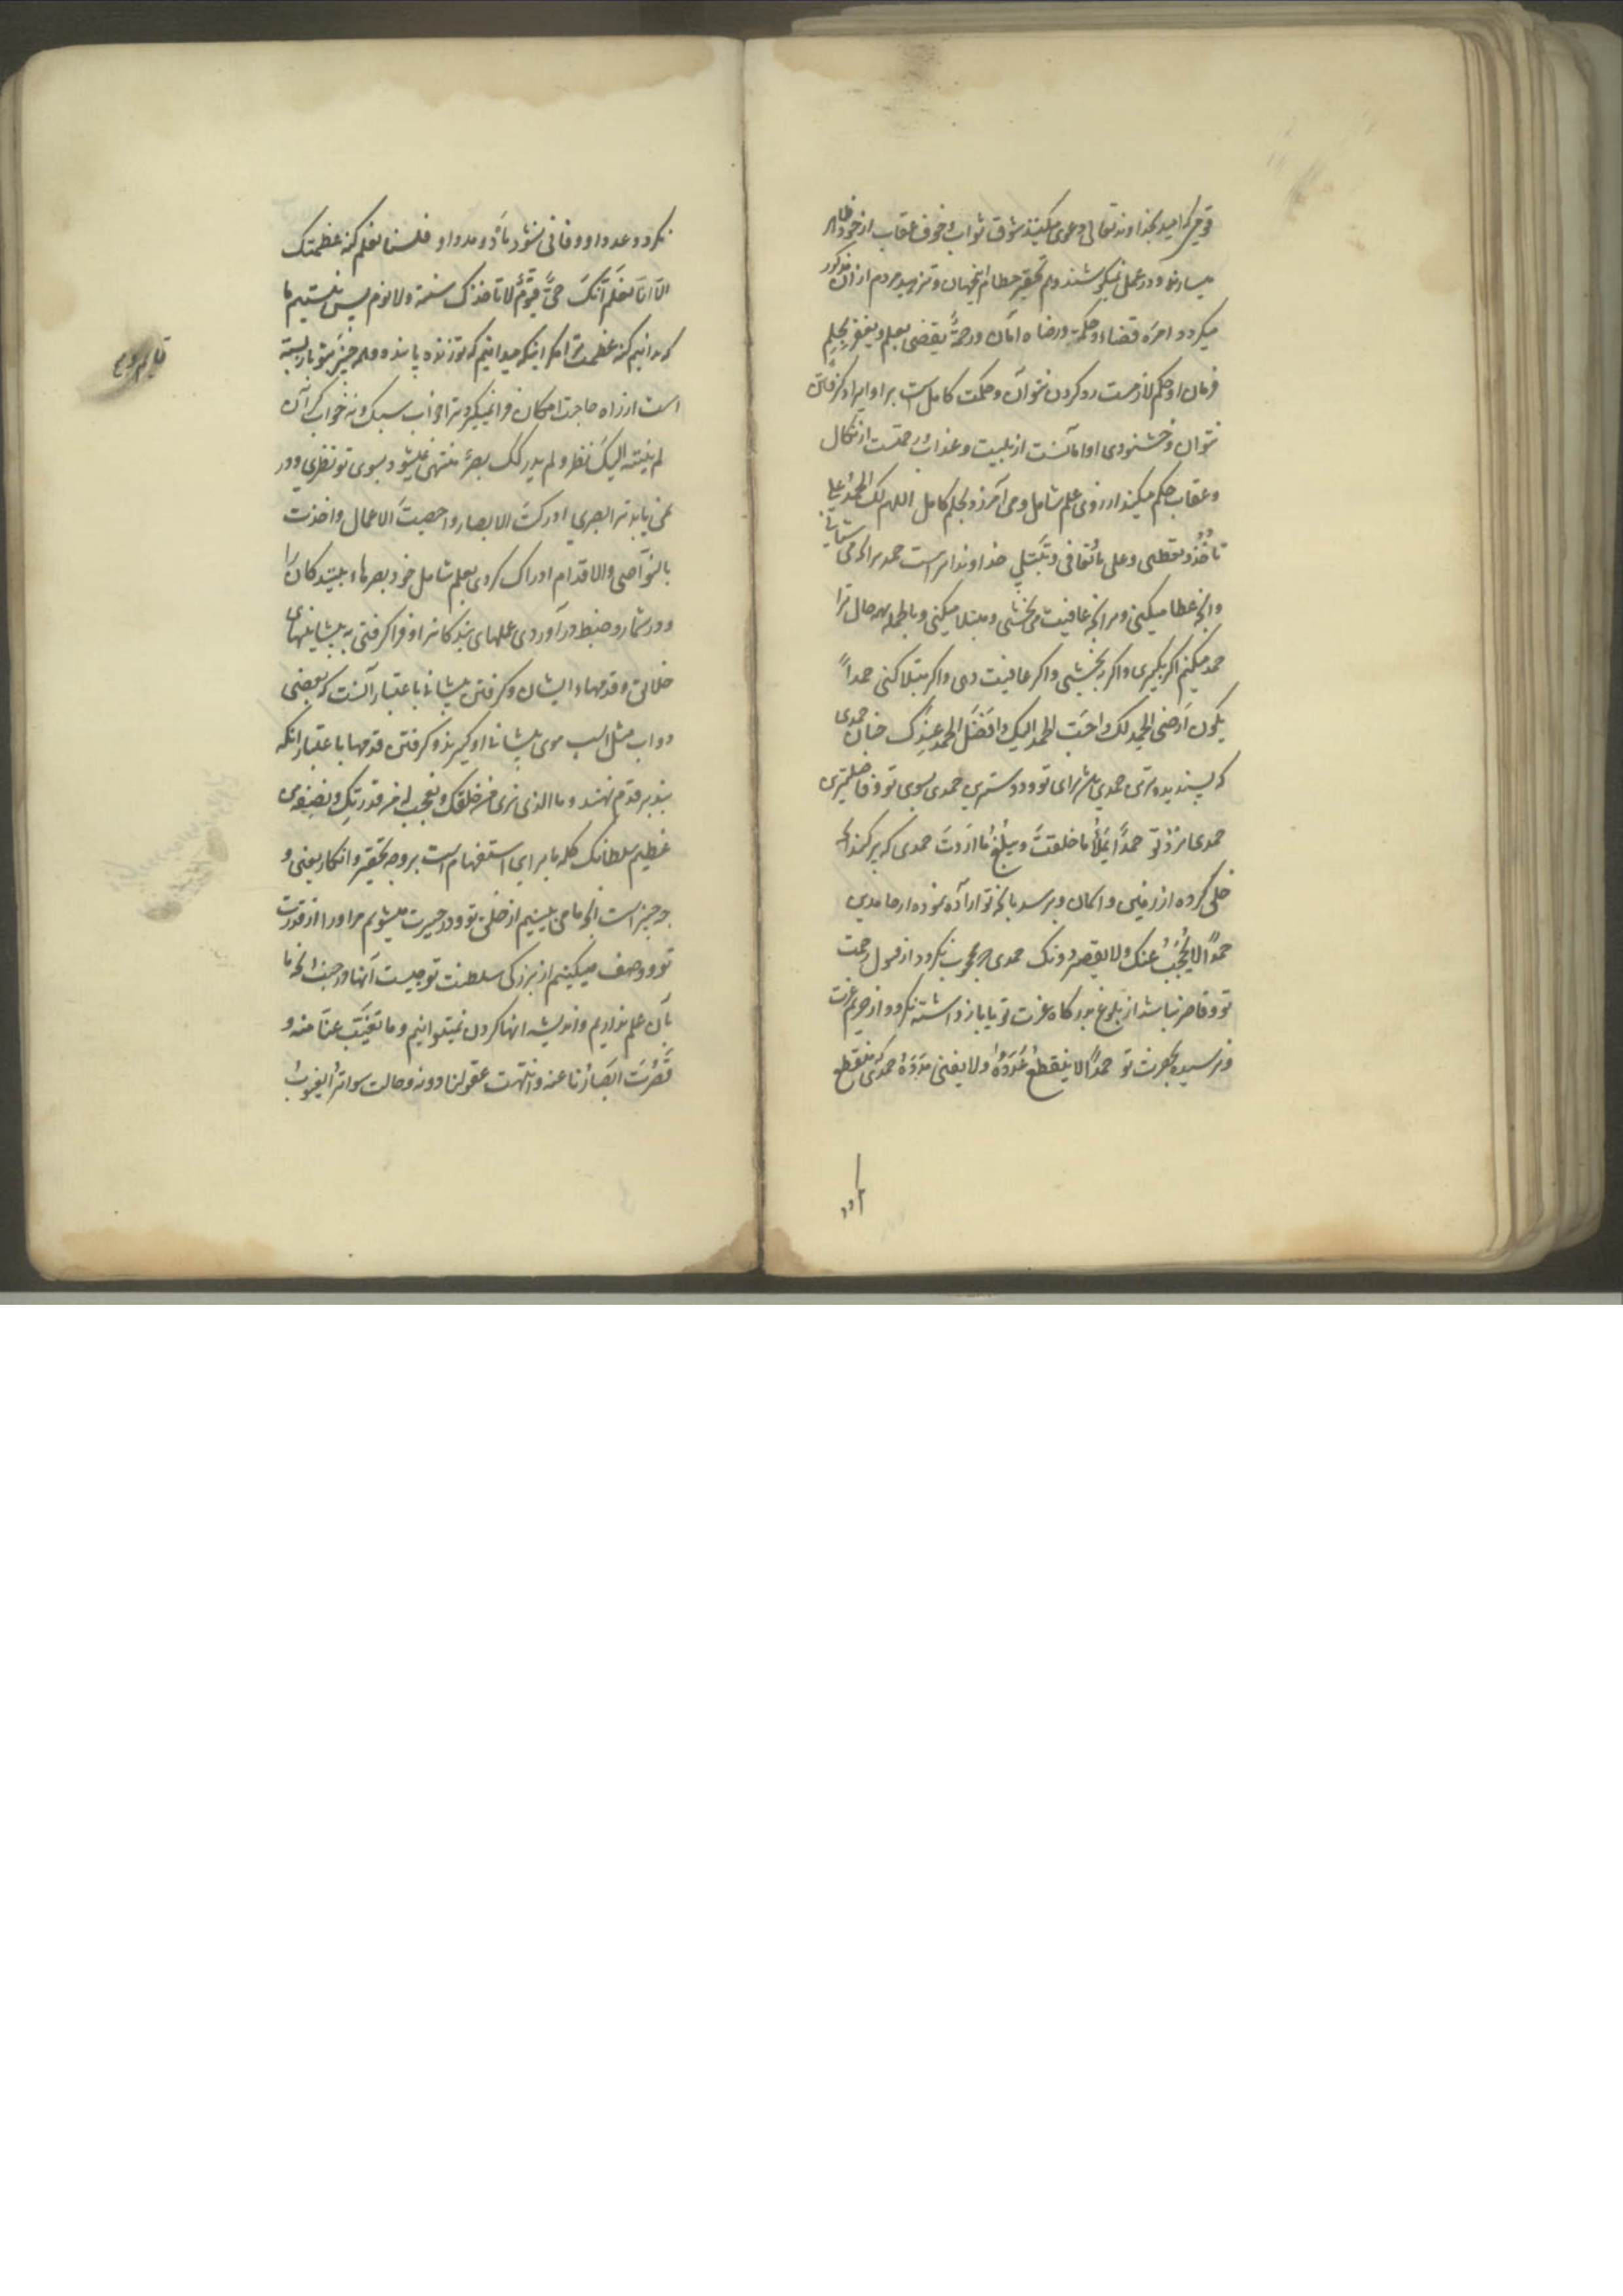 قومی که امید بخداوند تعالی دعوی میکنند شوق ثواب و خوف عقاب از خود ظاهر
میسازند و در عمل نمیکوشند و هم تحقیر حطام اینجهان و تزهید مردم از آن مذکور
میکردد امره قضاء و حکمة و رضاه امان و رحمةٌ یقضی بعلم و یغفر بحلم
فرمان او حکم لازمست رد کردن نتوان و حکمت کامل است بر او ایراد کرفتن
نتوان و خشنودی او امانست از بلیت و عذاب و رحمتست از نکال
و عقاب حکم میکند از روی علم شامل و می آمرزد بحلم کامل اللهم لک الحمد علی
تأخُذُ و تعطی و علی ما تُعافی و تَبْتَلِی خداوندا مر تراست حمد بر انچه می ستانی
و انچه عطا میکنی و بر انچه عافیت می بخشی و مبتلا میکنی و بالجمله بهر حال ترا
حمد میکنم اکر بکیری و اکر ببخشی و اکر عافیت دهی و اکر مبتلا کنی حمداً
یکون اَرضَی الحمد لک و احَبّ الحمد الیک و افضَل الحمد عِندک چنان حمدی
که پسندیده ترین حمدی باشد برای تو و دوستترین حمدی بسوی تو و فاضلترین
حمدی نزد تو حمدًا یَملَأُ ما خلقتَ و یبلُغُ ما اَردتَ حمدی که پر کند انچه
خلق کرده از زمین و آسمان و برسد بانچه تو اراده نموده از حامدین
حمدًا لا یُحْجَبُ عنک و لا یقصر دونک حمدی که محجوب نکردد از قبول رحمت
تو و قاصر نباشد از بلوغ بدرکاه عزت تو یا بازداشته نکردد از حریم عزت
و نرسیده بحضرت تو حمدًا لا ینقطعُ عَدَدُهُ و لا یفنی مَدَدُهُ حمدی که منقطع
نکردد عدد او و فانی نشود مادّه و مدد او فلسنا نعلم کنه عظمتک
الّا انّا نعلَم اَنّکَ حیٌّ قیّومٌ لا تاخذک سنة و لا نوم پس نیستیم ما
که بدانیم کنه عظمت ترا مکر اینکه میدانیم که تو زنده پاینده و همه چیز بتو باز بسته
است از راه حاجت امکان فرا نمیکیرد ترا خواب سبک و نه خواب کران
لم ینته الیک نظر و لم یدرکک بصرٌ منتهی نمیشود بسوی تو نظری و در
نمی یابد ترا بصری ادرکت الابصار و احصیت الاعمال و اخذت
بالنّواصی و الاقدام ادراک کردی بعلم شامل خود بصرهای بینندکان را
و در شمار و ضبط درآوردی عملهای بندکانرا و فرا کرفتی به پیشانیهای
خلائق و قدمهای ایشان و کرفتن پیشانی باعتبار آنست که بعضی
دواب مثل اسب موی پیشانی او کیرند و کرفتن قدمها باعتبار انکه
بند بر قدم نهند و ما الذی نری من خلقک و نعجب له من قدرتک و نصفه من
عظیم سلطانک کلمه ما برای استفهام است بر وجه تحقیر و انکار یعنی و
چه چیز است انچه ما می بینیم از خلق تو و در حیرت میشویم مر او را از قدرت
تو و وصف میکنیم از بزرکی سلطنت تو چیست آنها در جنب انچه ما
بآن علم نداریم و اندیشه انها کردن نمیتوانیم و ما تغیّب عنّا منه و
قَصُرت ابصارُنا عنه و انتهت عقولنا دونه و حالت سواترُ الغیوب